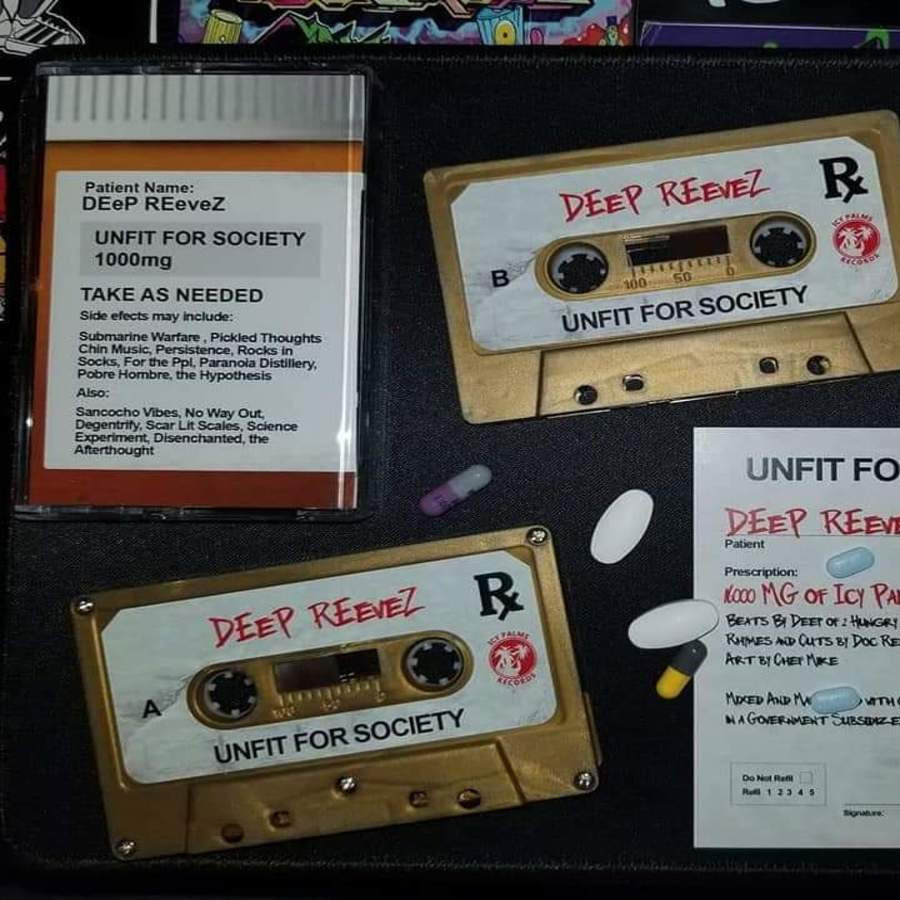 Patient Name:
DEeP REeveZ
UNFIT FOR SOCIETY
1000mg
TAKE AS NEEDED
Side efects may include:
Submarine Warfare , Pickled Thoughts
Chin Music, Persistence, Rocks in
Socks, For the Ppl, Paranoia Distillery,
Pobre Hombre, the Hypothesis
Also:
Sancocho Vibes, No Way Out,
Degentrify, Scar Lit Scales, Science
Experiment, Disenchanted, the
Afterthought
DEeP REeveZ
Rx
ICY PALMS
RECORDS
B
100 50 0
UNFIT FOR SOCIETY
DEeP REeveZ
Rx
ICY PALMS
RECORDS
A
100 50 0
UNFIT FOR SOCIETY
UNFIT FO
DEeP REeve
Patient
Prescription:
MG of Icy Pa
Beats By Deep of 2 Hungry
Rhymes and Cuts by Doc Re
Art by Chef Mike
Mixed And Ma with
in a Government Subsidize
Do Not Refill
Refill 1 2 3 4 5
Signature: